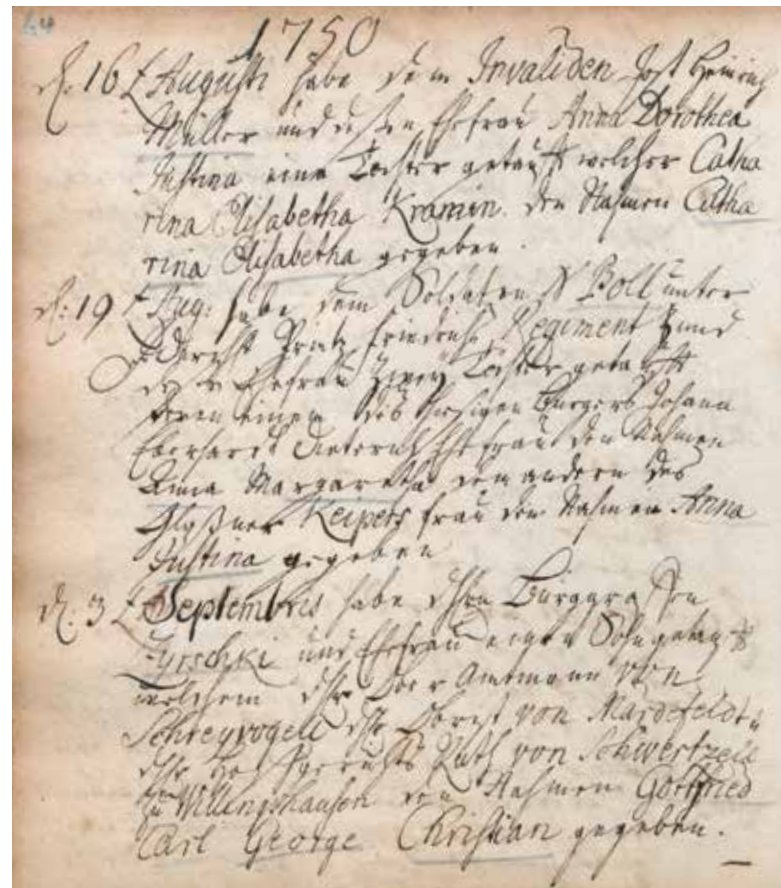 64
1750
d. 16t Augusti habe dem Invaliden Jost Heinrich
Müller und deßen Ehefrau Anna Dorothea
Justina eine Tochter getaufft welcher Catha
rina Elisabetha Kramin den Nahmen Catha
rina Elisabetha gegeben.
d: 19t Aug: habe dem Soldaten Boll unter
Printz Friedrich Regiment und
Ehefrau zwey Töchter getaufft
deren einen des hiesigen Burgers Johann
Eberhardt Dieterich Ehefrau den Nahmen
Anna Margaretha dem andern des
Keipers frau den Nahmen Anna
Justina gegeben
d. 3t Septembris habe Burggraffen
Tyrschki und Ehefrau einen Sohn getaufft
welchem Ihr Ober Amtmann von
Schreyvogell Ihr Obrist von Mardefeldt u
Ihr Rath von Schwertzell
zu Willingshausen den Nahmen Gottfried
Carl George Christian gegeben.